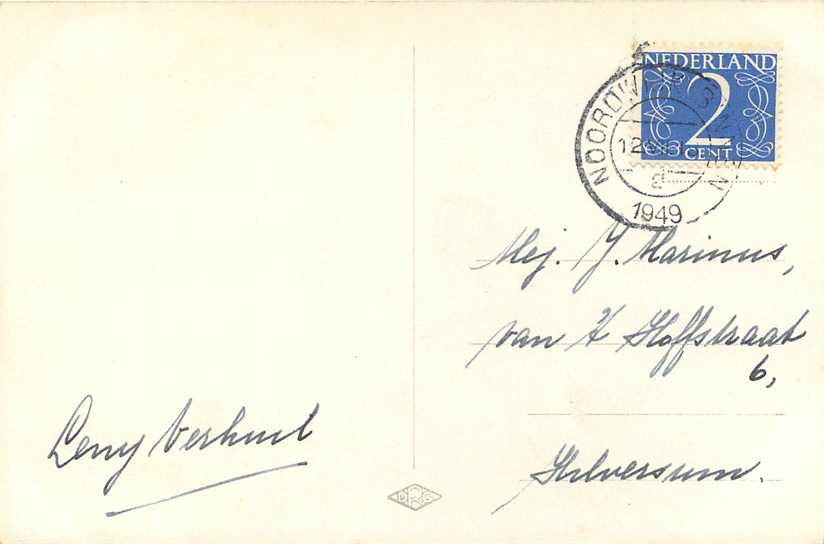 NEDERLAND
2
CENT
NOORDWIJK
1949
Mej. Y. Marinus,
van 't Hoffstraat
6,
Hilversum.
Leny Verhuel